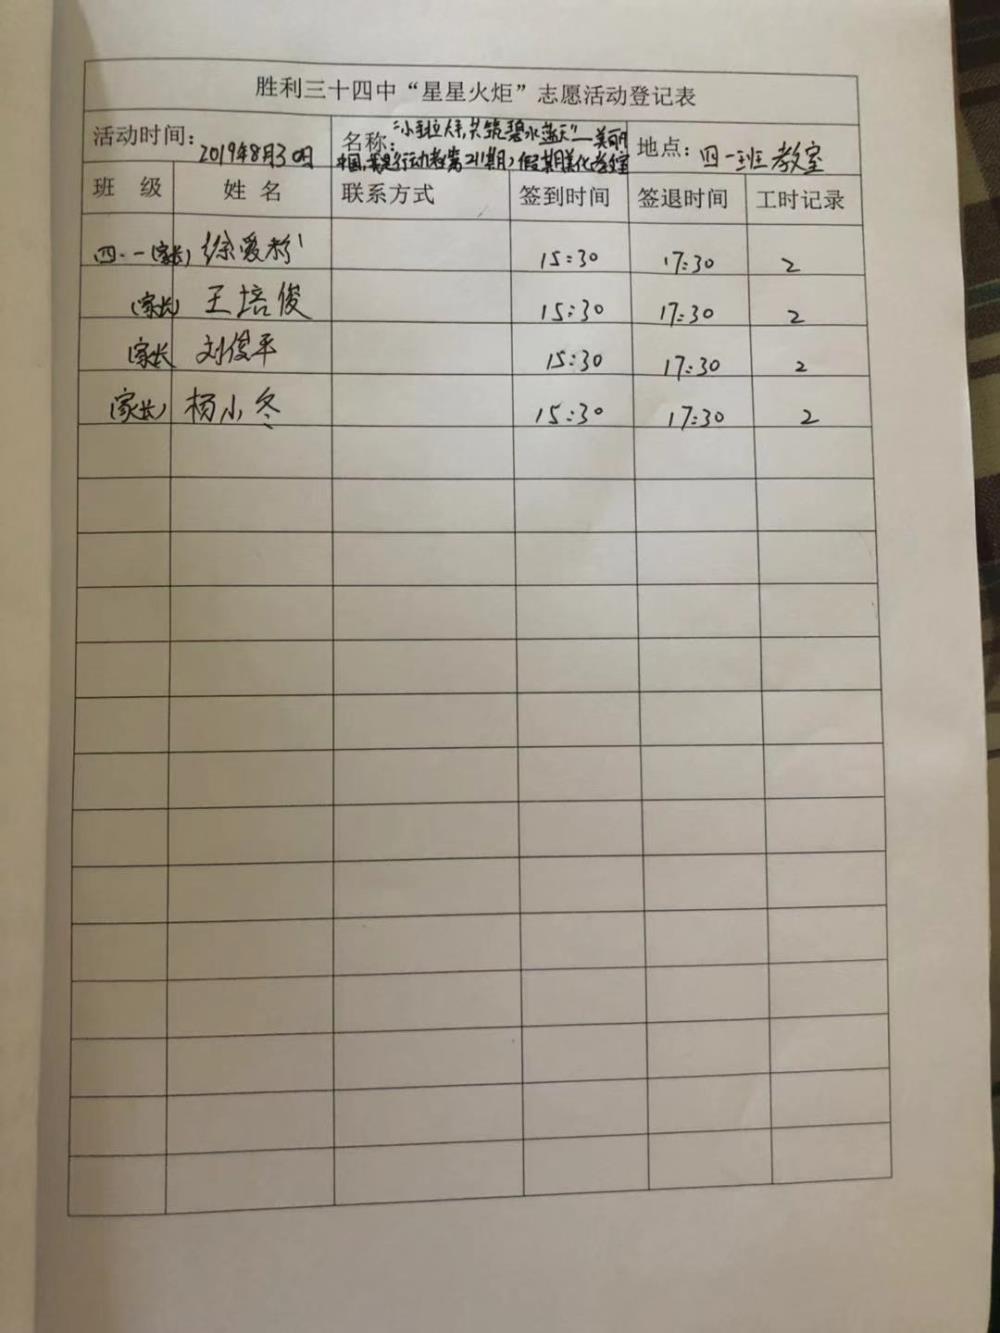 胜利三十四中“星星火炬”志愿活动登记表
活动时间：2019年8月30日 名称：“小手拉大手,共筑碧水蓝天”—美丽 地点：四一班教室
中国,我是行动者(第211期)假期美化教室
班 级 姓 名 联系方式 签到时间 签退时间 工时记录
四.一(家长) 徐爱 15:30 17:30 2
(家长) 王培俊 15:30 17:30 2
(家长 刘俊平 15:30 17:30 2
(家长) 杨小冬 15:30 17:30 2